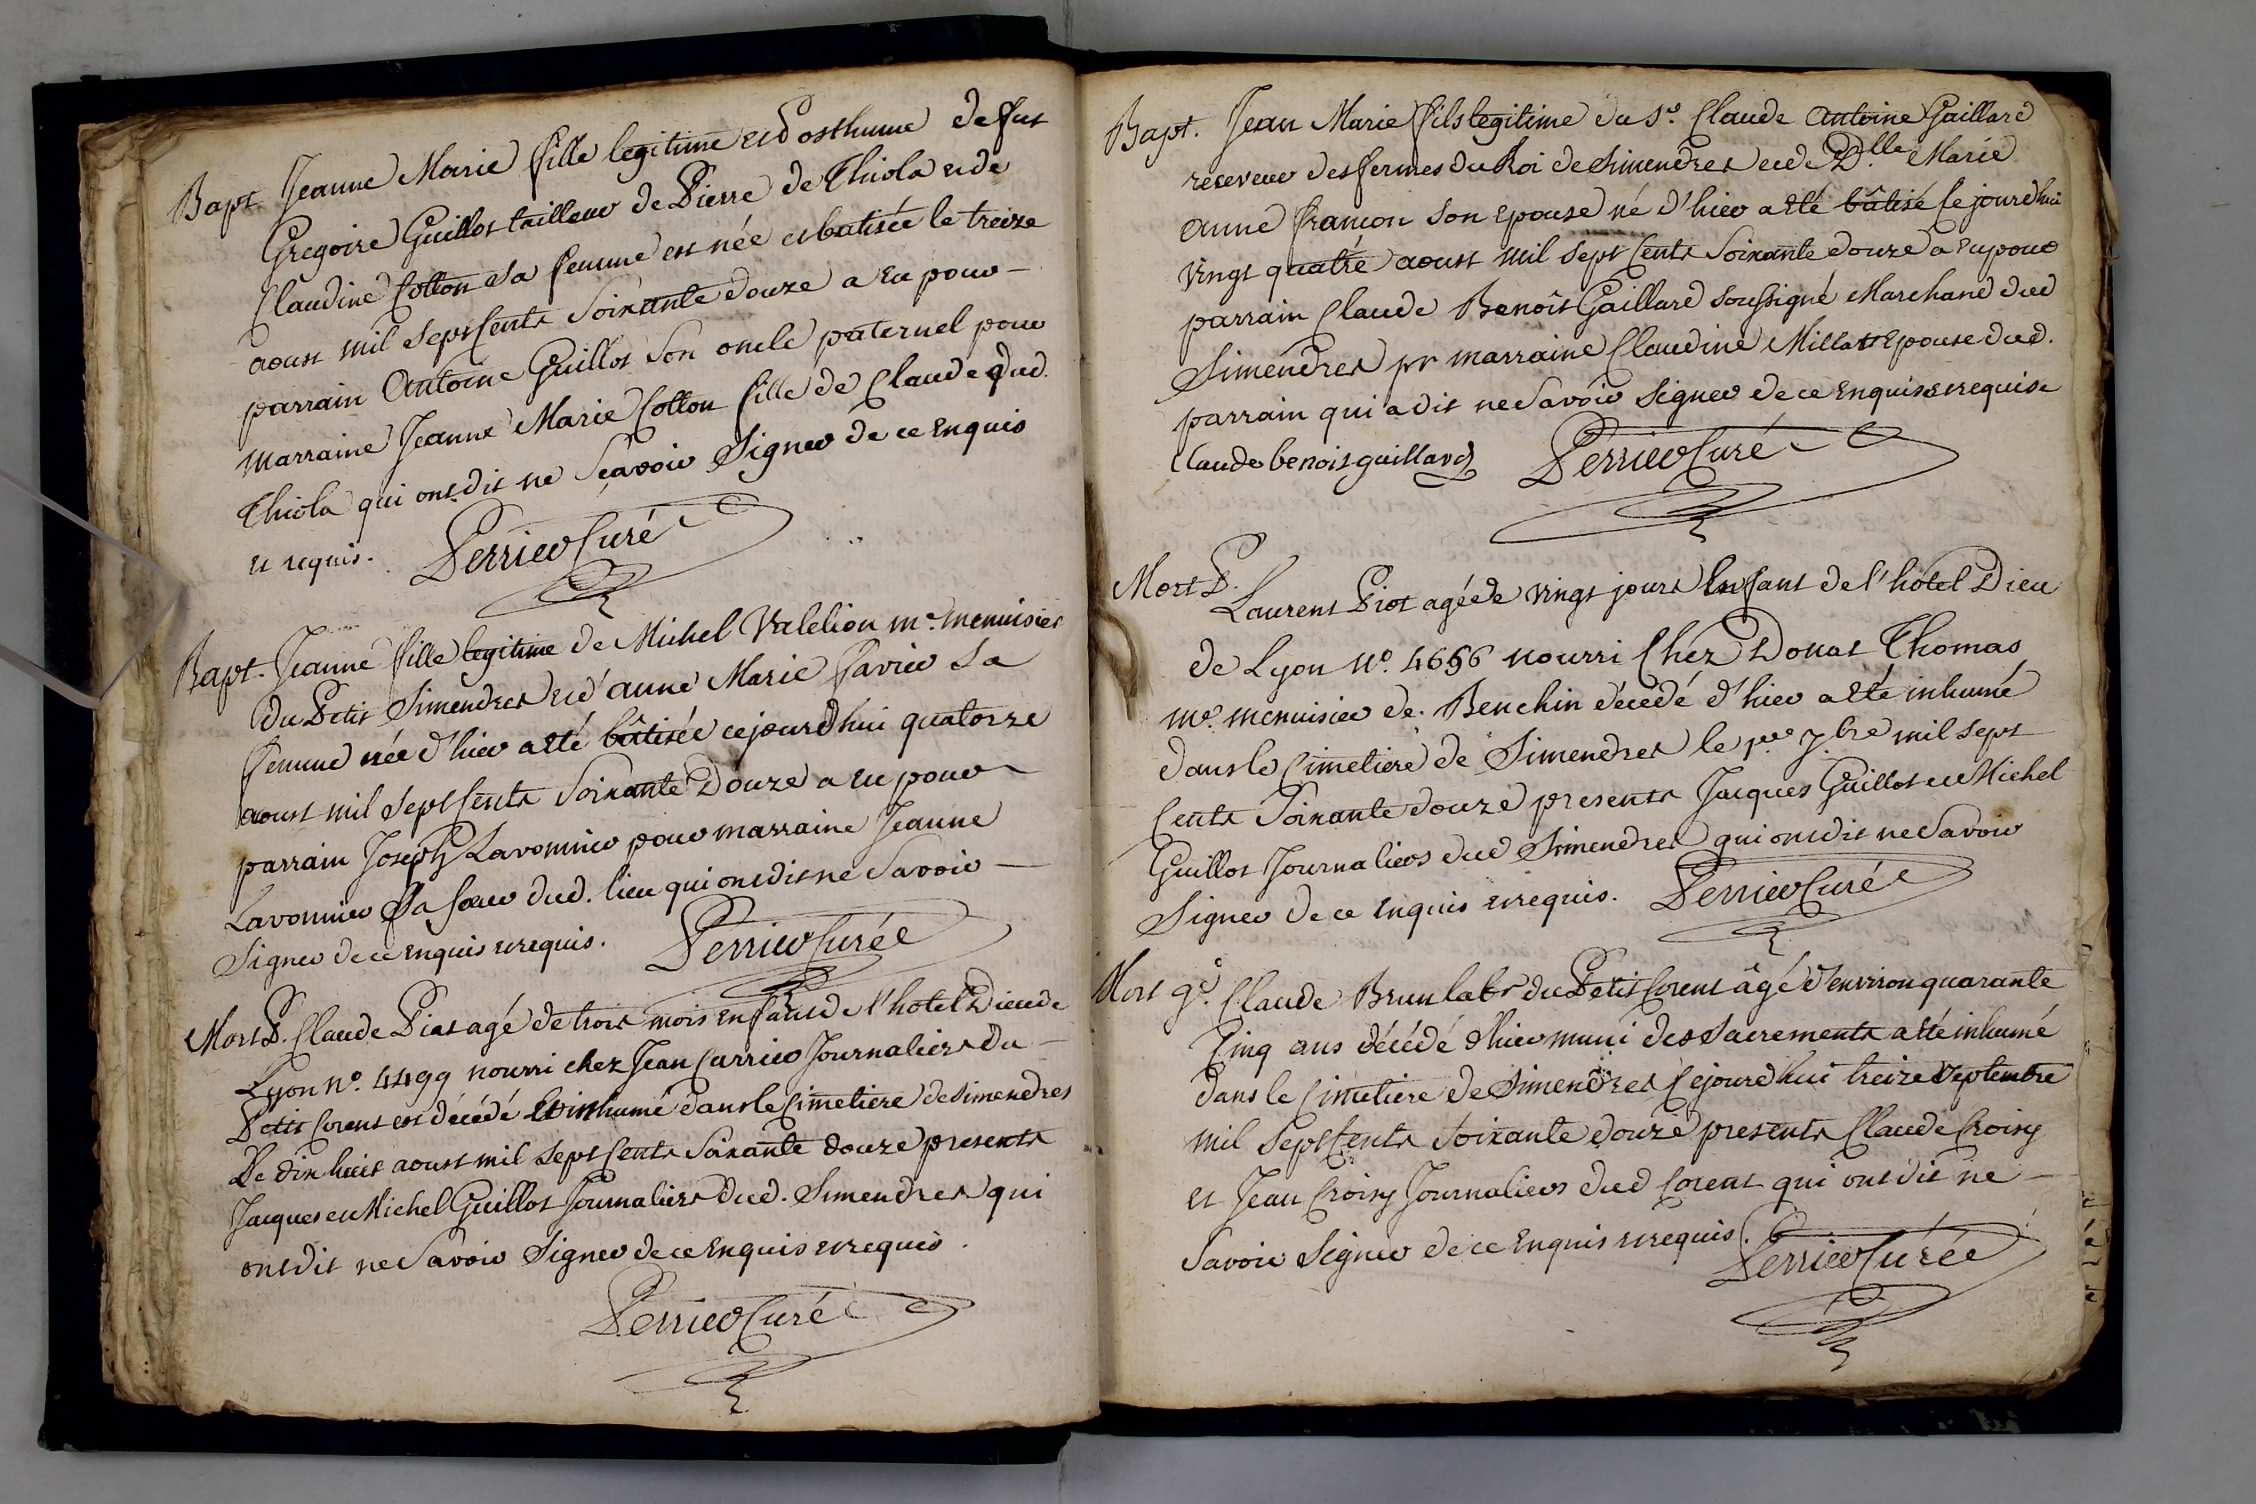 Bapt. Jeanne Marie fille legitime et Posthume de fut
Gregoire Guillot tailleur de Pierre de Thiola et de
Claudine Cotton sa femme est née et batisée le treize
aoust mil sept Cents Soixante douze a eu pour —
parrain Antoine Guillot son oncle paternel pour
marraine Jeanne Marie Cotton fille de Claude dud.
Thiola qui ont dit ne Sçavoir Signer de ce Enquis
et requis. Perrier Curé
Bapt. Jeanne fille legitime de Michel Valelion me. menuisier
du Petit Simendres et d'anne Marie Favier sa
femme née d'hier a été bâtisée cejourdhui quatorze
aoust mil sept Cents Soixante Douze a eu pour
parrain Joseph Lavonnier pour marraine Jeanne
Lavonnier sa soeur dud. lieu qui ont dit ne Savoir —
Signer de ce enquis et requis. Perrier Curé
Mort P. Claude Piat agé de trois mois enfant de l'hotel Dieu de
Lyon No. 4499 nourri chez Jean Carrier Journalier du —
Petit Corent est décédé Et inhumé dans le Cimetiere de Simendres
Le dix huit aoust mil sept Cents Soixante douze presents
Jacques et Michel Guillot Journaliers dud. Simendres qui
ont dit ne Savoir Signer de ce Enquis et requis.
Perrier Curé
Bapt. Jean Marie fils legitime du Sr. Claude Antoine Gaillard
receveur des fermes du Roi de Simendres et de Dlle Marie
anne Françon son Epouse né d'hier a été bâtisé Cejourdhui
vingt quatre aoust mil sept Cents Soixante douze a eu pour
parrain Claude Benoît Gaillard soussigné Marchand dud
Simendres pr marraine Claudine Millat Epouse dud.
parrain qui a dit ne Savoir Signer de ce Enquise et requise
Claude benoit gaillard Perrier Curé
Mort P. Laurent Piot agé de vingt jours Enfant de l'hôtel Dieu
de Lyon No. 4656 nourri Chez Donat Thomas
me. menuisier de Benchin décedé d'hier a été inhumé
dans le Cimetiere de Simendres le per 7.bre mil sept
Cents Soixante douze presents Jacques Guillot et Michel
Guillot Journaliers dud Simendres qui ont dit ne Savoir
Signer de ce Enquis et requis. Perrier Curé
Mort gd. Claude Brun labr du Petit Corent âgé d'environ quarante
Cinq ans décédé d'hier muni des Sacrements a été inhumé
dans le Cimetiere de Simendres Cejourdhui treize Septembre
mil sept Cents Soixante douze presents Claude Croisy
et Jean Croisy Journaliers dud Corent qui ont dit ne —
Savoir Signer de ce Enquis et requis. Perrier Curé